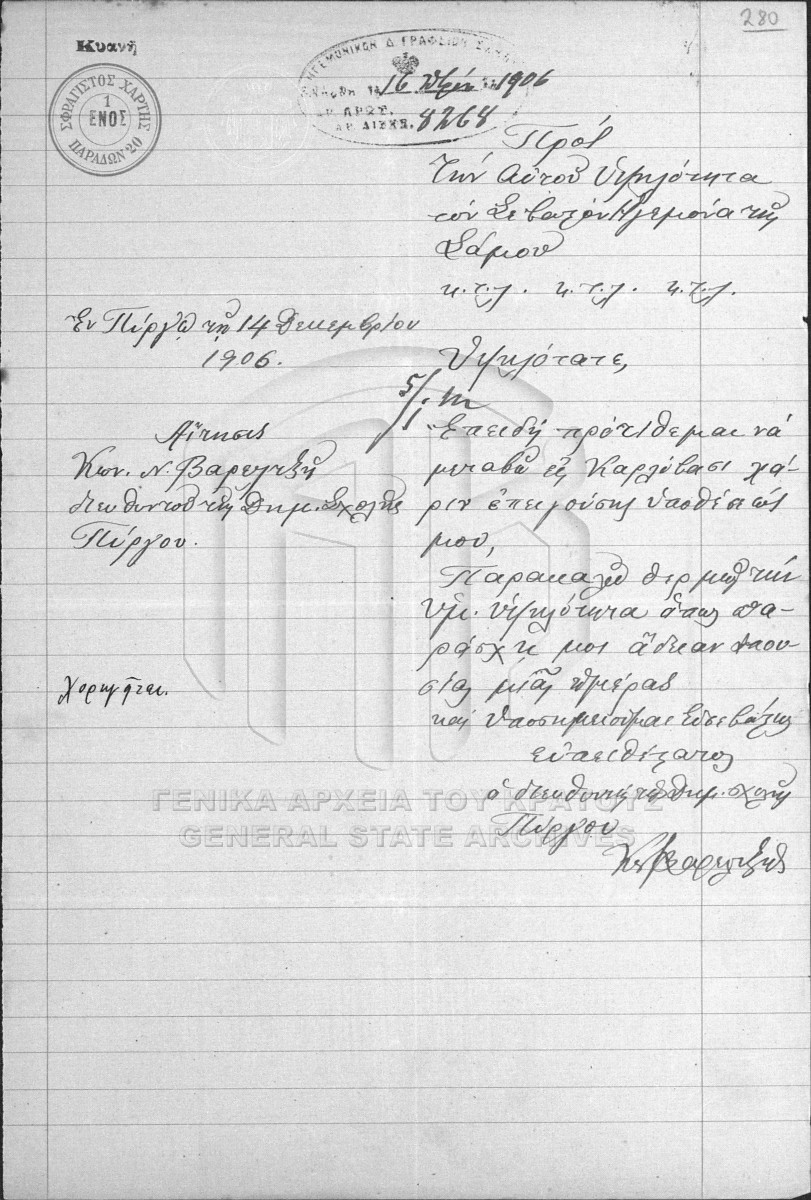 280
Κυανῆ
ΣΦΡΑΓΙΣΤΟΣ ΧΑΡΤΗΣ
1
ΕΝΟΣ
ΠΑΡΑΔΩΝ 20
ΗΓΕΜΟΝΙΚΟΝ Δ. ΓΡΑΦΕΙΟΝ ΣΑΜΟΥ
16 1906
ΑΡ. ΠΡΩΤ.
ΑΡ. ΔΙΕΚΠ. 8268
Πρὸς
Τὴν Αὐτοῦ Ὑψηλότητα
τὸν Σεβαστὸν Ἡγεμόνα τῆς
Σάμου
κ.τ.λ. κ.τ.λ. κ.τ.λ.
Ἐν Πύργῳ τῇ 14 Δεκεμβρίου
1906.
Ὑψηλότατε,
Αἴτησις
Κων. Ν. Βαρελτζῆ
διευθυντοῦ τῆς Δημ. Σχολῆς
Πύργου.
Ἐπειδὴ προτίθεμαι νὰ
μεταβῶ εἰς Καρλόβασι χά-
ριν ἐπειγούσης ὑποθέσεώς
μου,
Παρακαλῶ θερμῶς τὴν
Ὑμ. Ὑψηλότητα ὅπως πα-
ράσχῃ μοι ἄδειαν ἀπου-
σίας μιᾶς ἡμέρας
καὶ ὑποσημειοῦμαι εὐσεβάστως
Εὐπειθέστατος
ὁ διευθυντὴς τῆς Δημ. σχολῆς
Πύργου
Χορηγῆται.
ΓΕΝΙΚΑ ΑΡΧΕΙΑ ΤΟΥ ΚΡΑΤΟΥΣ
GENERAL STATE ARCHIVES